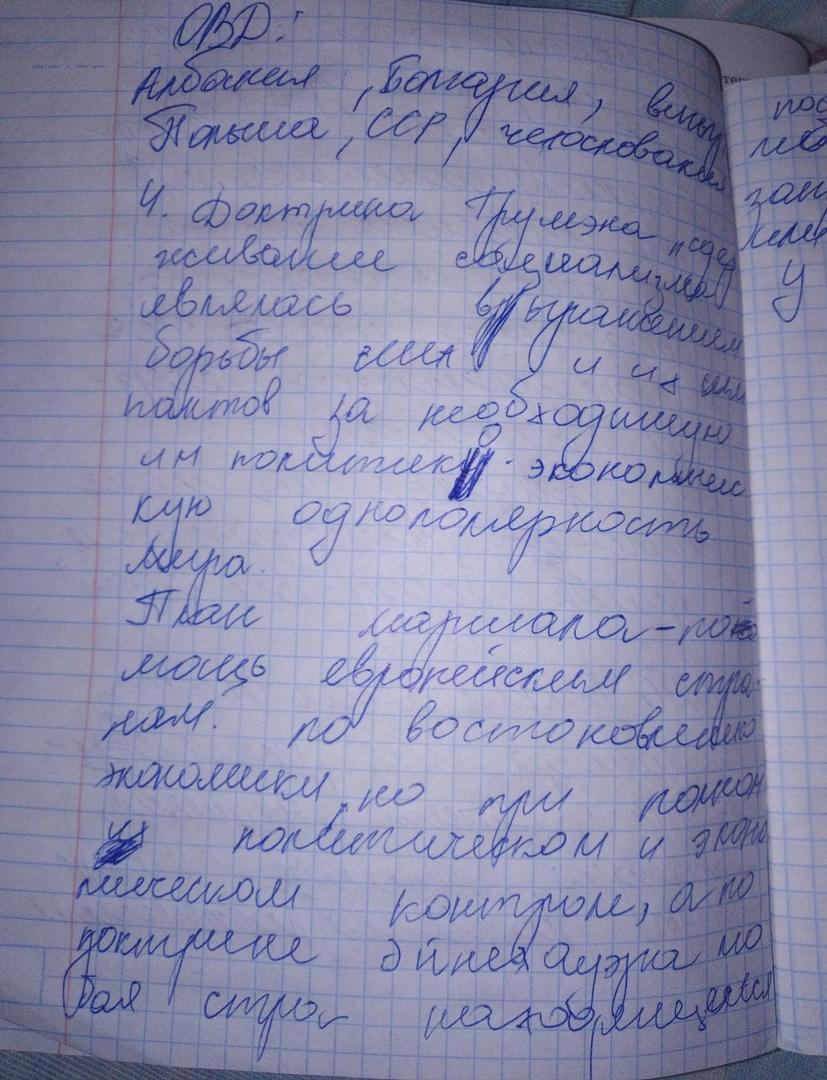 ОВД:
Албания, Болгария, венгр
Польша, ССР, чехословакия
4. Доктрина Трумэна "сдер
живание социализма"
являлась выражением
борьбы сил и их
пактов за необходимую
им политико-экономичес
кую однополярность
мира.
План маршала - по
мощь европейским стра-
нам. по востоновлению
экономики, но при полном
их политическом и эконо
мическом контроле, а по
доктрине Эйнехауэра лю
бая стра находящаяся
пос
люб
зан
У